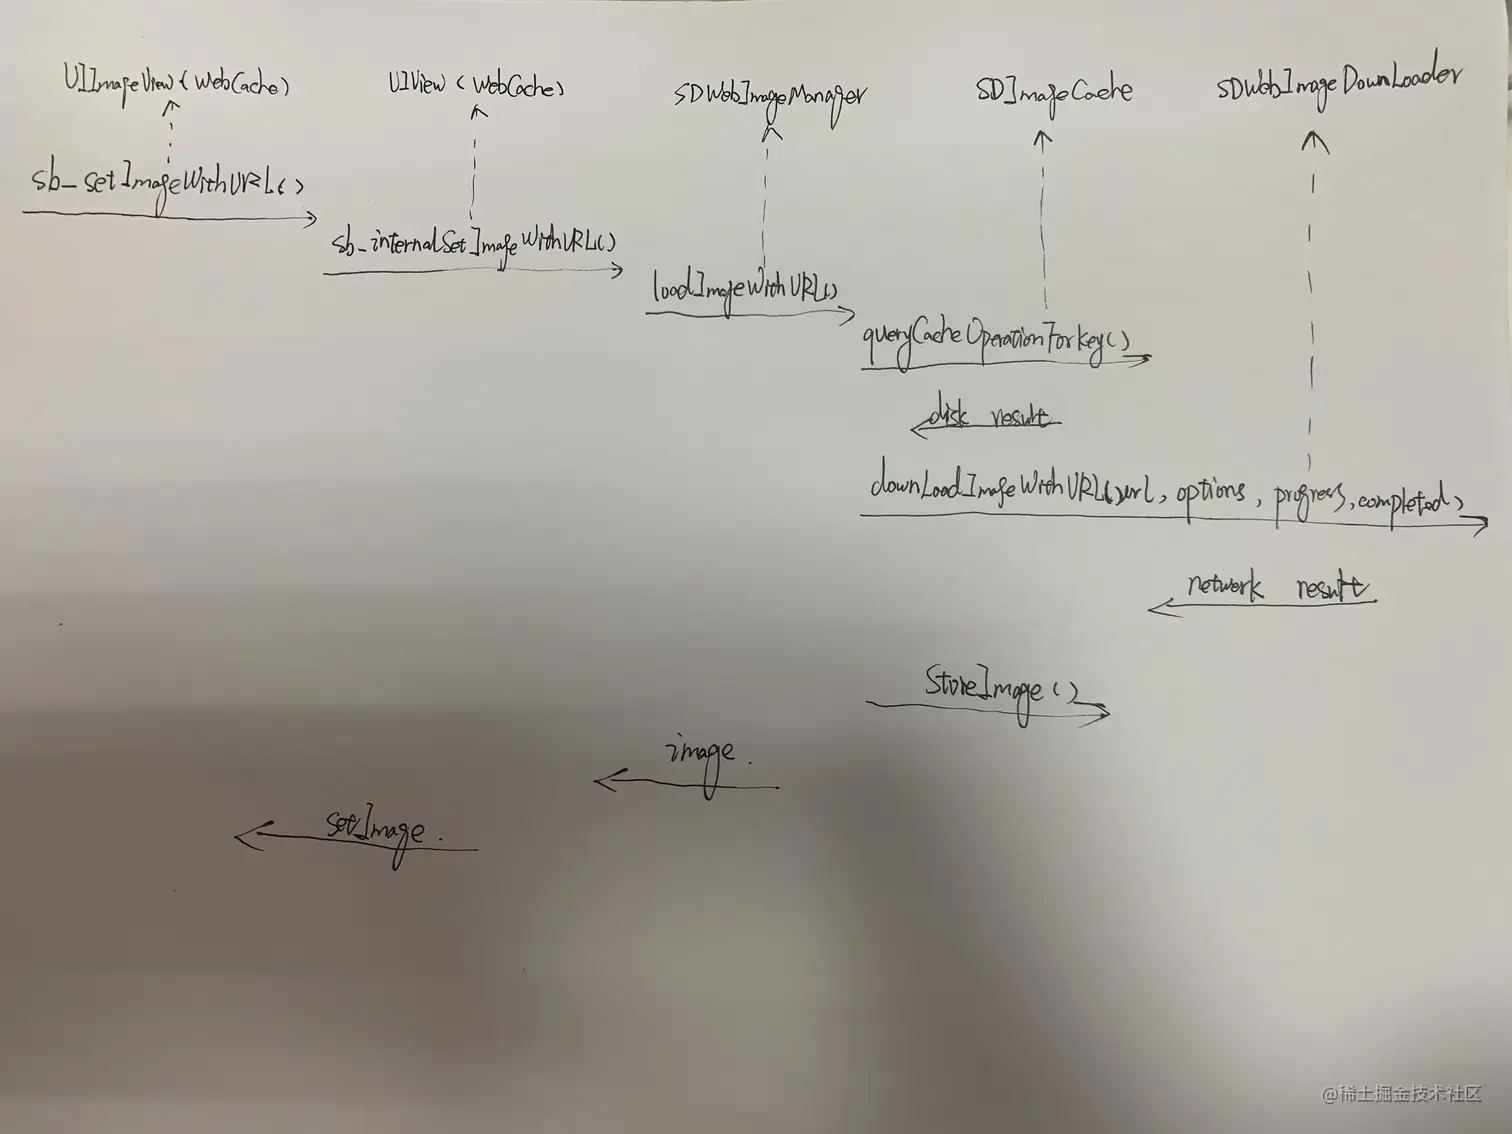 UIImageView(WebCache)
UIView (WebCache)
SDWebImageManager
SDImageCache
SDWebImageDownLoader
sb_setImageWithURL()
sb_internalSetImageWithURL()
loadImageWithURL()
queryCacheOperationForkey()
disk result
downLoadImageWithURL()url, options, progress, completed)
network result
StoreImage()
image.
setImage.
@稀土掘金技术社区